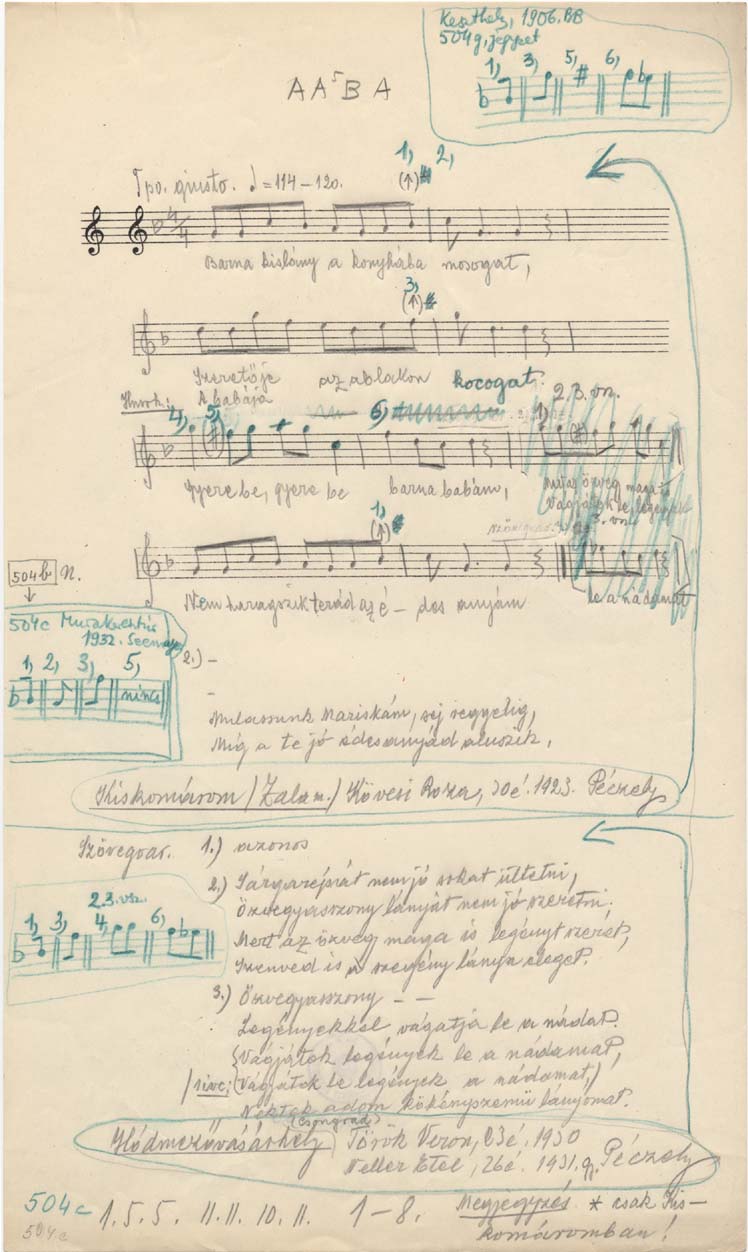 Keszthely, 1906. BB
504g, jegyzet
1, 3, 5, 6,
A A⁵ B A
1, 2,
Tpo. giusto. ♩=114–120. (↑)
4/4
Barna kislány a konyhába mosogat,
3,
(↑)
Szeretője az ablakon kocogat.
A babája
2.3. vsz.
4, 5, 6, 1)
Gyere be, gyere be barna babám,
Vágjátok le legények
1,
(↑)
3. vsz.
504b n.
Nem haragszik terád az é – des anyám
le a nádamat
504c Murakeresztúr
1932. Seemayer
1, 2, 3, 5,
nincs
2.) –
–
Mulassunk Mariskám, sej reggelig,
Míg a te jó édesanyád aluszik,
Kiskomárom (Zala m.) Kövesi Roza, 30é. 1923. Péczely
Szövegvar. 1.) azonos
2.) Sárgarépát nem jó sokat ültetni,
Özvegyasszony lányát nem jó szeretni.
Mert az özvegy maga is legényt szeret,
Szenved is a szegény lánya eleget.
2.3. vsz.
1, 3, 4, 6,
3.) Özvegyasszony – –
Legényekkel vágatja le a nádat.
Vágjátok legények le a nádamat,
/sive: Vágjátok le legények a nádamat,/
Nektek adom kökényszemü lányomat.
(Csongrád)
Hódmezővásárhely, Török Veron, 23é. 1930
Teller Etel, 26é. 1931. gy. Péczely
504c 1. 5. 5. 11. 11. 10. 11. 1–8. Megjegyzés * csak Kis-
504c komáromban!